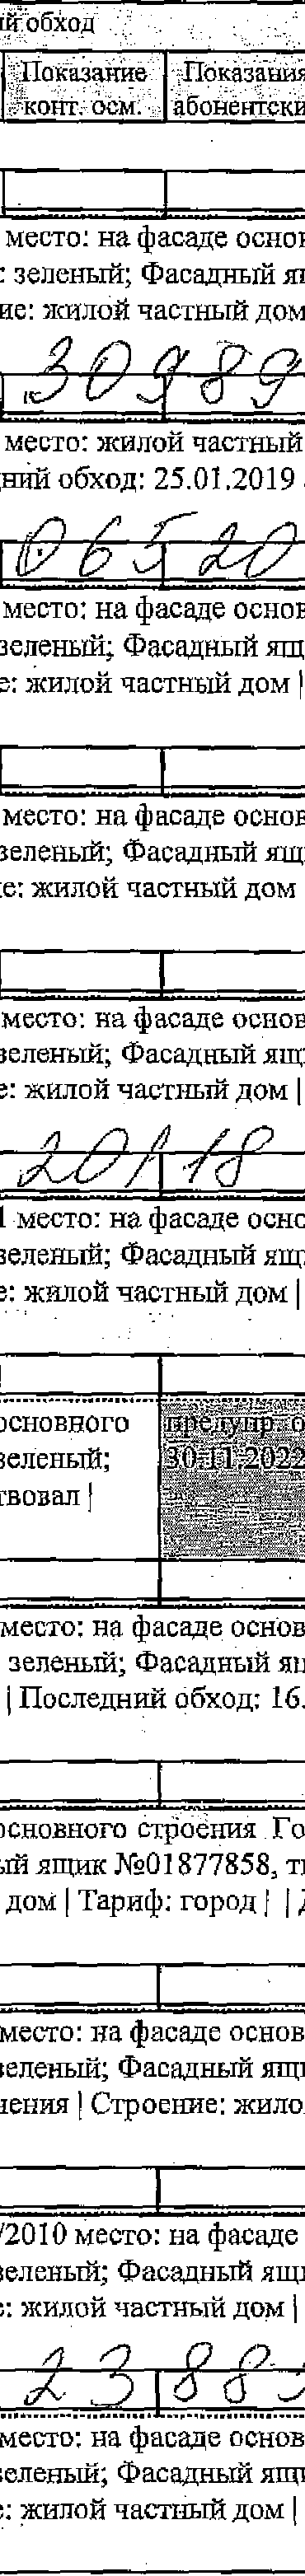 ый обход
Показание Показания
конт. осм. абонентски
место: на фасаде основ
: зеленый; Фасадный ящ
ие: жилой частный дом
30989
место: жилой частный
ний обход: 25.01.2019
06520
место: на фасаде основ
зеленый; Фасадный ящ
е: жилой частный дом |
место: на фасаде основ
зеленый; Фасадный ящ
е: жилой частный дом
место: на фасаде основ
зеленый; Фасадный ящ
е: жилой частный дом |
20118
1 место: на фасаде осно
зеленый; Фасадный ящ
е: жилой частный дом |
основного предупр. о
зеленый; 30.11.2022
твовал |
место: на фасаде основ
зеленый; Фасадный ящ
| Последний обход: 16.
основного строения Го
ый ящик №01877858, ти
дом | Тариф: город | | Д
место: на фасаде основ
зеленый; Фасадный ящ
чения | Строение: жило
/2010 место: на фасаде
зеленый; Фасадный ящ
е: жилой частный дом |
2388
место: на фасаде основ
зеленый; Фасадный ящ
е: жилой частный дом |